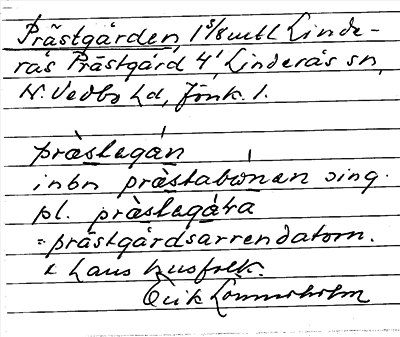 Prästgården, 1 5/8 mtl Linde-
rås Prästgård 4¹, Linderås sn,
N. Vedbo hd, Jönk. l.
præ̀stagán
inbn præ̀stabωnen sing.
pl. præ̀stagáṙa
= prästgårdsarrendatorn.
& hans husfolk.
Erik Lommeholm